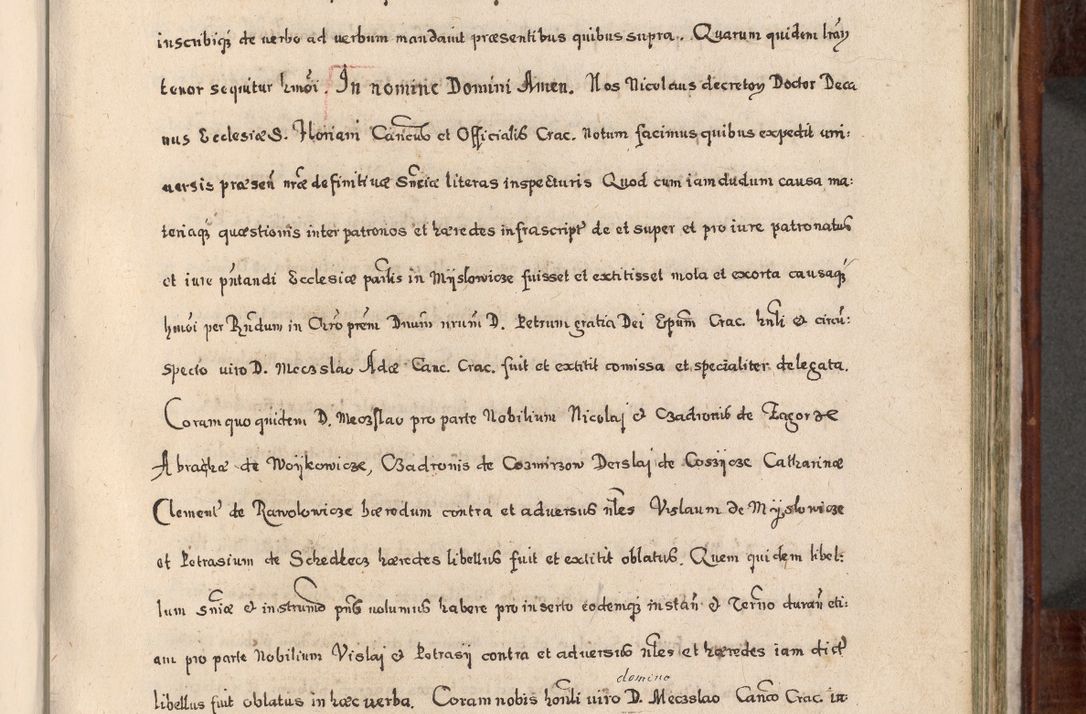 inscribiq₃ de verbo ad verbum mandavit præsentibus quibus supra. Quarum quidem lrãy
tenor sequitur hmõi. In nomine Domini Amen. Nos Nicolaus decretoy Doctor Deca
nus Ecclesiæ S. Floriani Cancus et Officialis Crac. notum facimus quibus expedit uni:
versis præsen nrẽ definitivæ Snẽiæ literas inspecturis Quod cum iamdudum causa ma:
teriaq₃ quæstionis inter patronos et hæredes infrascript de et super et pro iure patronatus
et iure pñtandi Ecclesiæ parlis in Myslowicze fuisset et extitisset mota et exorta causaq₃
hmõi per Rñdum in Chrõ prẽm Dnum nrum D. Petrum gratia Dei Epum Crac. hnli et circũ:
specto viro D. Meczslao Adæ Canc. Crac. fuit et extitit comissa et specialiter delegata.
Coram quo quidem D. Meczslao pro parte Nobilium Nicolaj et Czadronis de Zagorze
Abrachæ de Woijkowicze, Czadronis de Cozmirzow Derslaj de Coszijcze Catharinæ
Clement de Rawolowicze hæredum contra et adversus nles Vislaum de Myslowicze
et Petrasium de Schedlecz hæredes libellus fuit et extitit oblatus. Quem quidem libel:
lum sniæ et instrumo pns volumus habere pro inserto eodemq₃ instan et Termo duran eti:
am pro parte Nobilium Vislaj et Petrasij contra et adversus nles et hæredes iam dict
domino
libellus fuit oblatus in hæc verba. Coram nobis honli viro D. Meczslao Canco Crac. in: